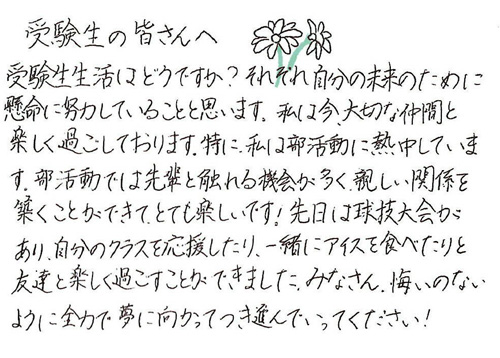 受験生の皆さんへ
受験生生活はどうですか？それぞれ自分の未来のために
懸命に努力していることと思います。私は今、大切な仲間と
楽しく過ごしております。特に、私は部活動に熱中していま
す。部活動では先輩と触れる機会が多く、親しい関係を
築くことができて、とても楽しいです！先日は球技大会が
あり、自分のクラスを応援したり、一緒にアイスを食べたりと
友達と楽しく過ごすことができました。みなさん、悔いのない
ように全力で夢に向かってつき進んでいってください！